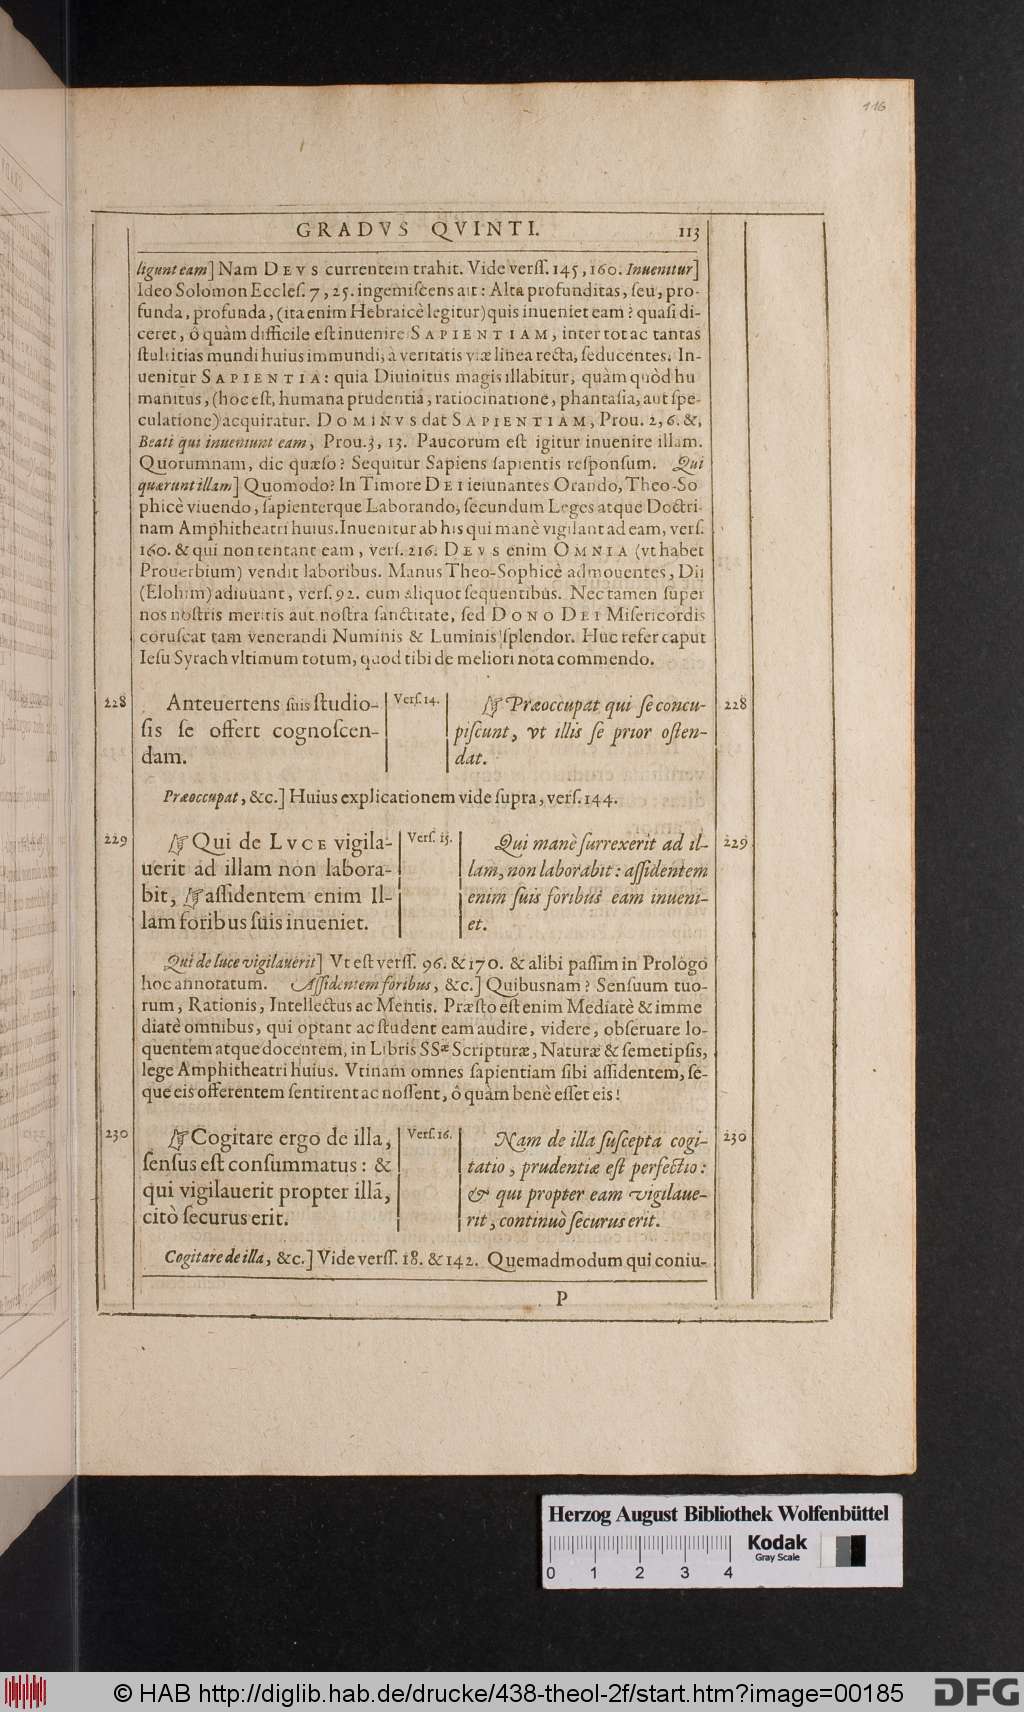 116
GRADVS QVINTI. 113
ligunt eam] Nam DEVS currentem trahit. Vide verſſ. 145, 160. Inuenitur]
Ideo Solomon Eccleſ. 7, 25. ingemiſcens ait: Alta profunditas, ſeu, pro-
funda, profunda, (ita enim Hebraicè legitur) quis inueniet eam? quaſi di-
ceret, ô quàm difficile eſt inuenire SAPIENTIAM, inter tot ac tantas
ſtultitias mundi huius immundi, à veritatis viæ linea recta, ſeducentes. In-
uenitur SAPIENTIA: quia Diuinitus magis illabitur, quàm quòd hu
manitus, (hoc eſt, humana prudentiâ, ratiocinatione, phantaſia, aut ſpe-
culatione) acquiratur. DOMINVS dat SAPIENTIAM, Prou. 2, 6. &,
Beati qui inueniunt eam, Prou. 3, 13. Paucorum eſt igitur inuenire illam.
Quorumnam, dic quæſo? Sequitur Sapiens ſapientis reſponſum. Qui
quærunt illam] Quomodo? In Timore DEI ieiunantes Orando, Theo-So
phicè viuendo, ſapienterque Laborando, ſecundum Leges atque Doctri-
nam Amphitheatri huius. Inuenitur ab his qui manè vigilant ad eam, verſ.
160. & qui non tentant eam, verſ. 216. DEVS enim OMNIA (vt habet
Prouerbium) vendit laboribus. Manus Theo-Sophicè admouentes, Dii
(Elohim) adiuuant, verſ. 92. cum aliquot ſequentibus. Nec tamen ſuper
nos noſtris meritis aut noſtra ſanctitate, ſed DONO DEI Miſericordis
coruſcat tam venerandi Numinis & Luminis ſplendor. Huc refer caput
Ieſu Syrach vltimum totum, quod tibi de meliori nota commendo.
228 Anteuertens ſuis ſtudio-
ſis ſe offert cognoſcen-
dam.
Verſ. 14.
☞ Præoccupat qui ſe concu- 228
piſcunt, vt illis ſe prior oſten-
dat.
Præoccupat, &c.] Huius explicationem vide ſupra, verſ. 144.
229 ☞ Qui de LVCE vigila-
uerit ad illam non labora-
bit, ☞ aſſidentem enim Il-
lam foribus ſuis inueniet.
Verſ. 15.
Qui manè ſurrexerit ad il- 229
lam, non laborabit: aſſidentem
enim ſuis foribus eam inueni-
et.
Qui de luce vigilauerit] Vt eſt verſſ. 96. & 170. & alibi paſſim in Prologo
hoc annotatum. Aſſidentem foribus, &c.] Quibusnam? Senſuum tuo-
rum, Rationis, Intellectus ac Mentis. Præſto eſt enim Mediatè & imme
diatè omnibus, qui optant ac ſtudent eam audire, videre, obſeruare lo-
quentem atque docentem, in Libris SSæ Scripturæ, Naturæ & ſemetipſis,
lege Amphitheatri huius. Vtinam omnes ſapientiam ſibi aſſidentem, ſe-
que eis offerentem ſentirent ac noſſent, ô quàm benè eſſet eis!
230 ☞ Cogitare ergo de illa,
ſenſus eſt conſummatus: &
qui vigilauerit propter illã,
citò ſecurus erit.
Verſ. 16.
Nam de illa ſuſcepta cogi- 230
tatio, prudentiæ eſt perfectio:
& qui propter eam vigilaue-
rit, continuò ſecurus erit.
Cogitare de illa, &c.] Vide verſſ. 18. & 142. Quemadmodum qui coniu-
P
Herzog August Bibliothek Wolfenbüttel
Kodak
Gray Scale
0 1 2 3 4
© HAB http://diglib.hab.de/drucke/438-theol-2f/start.htm?image=00185
DFG